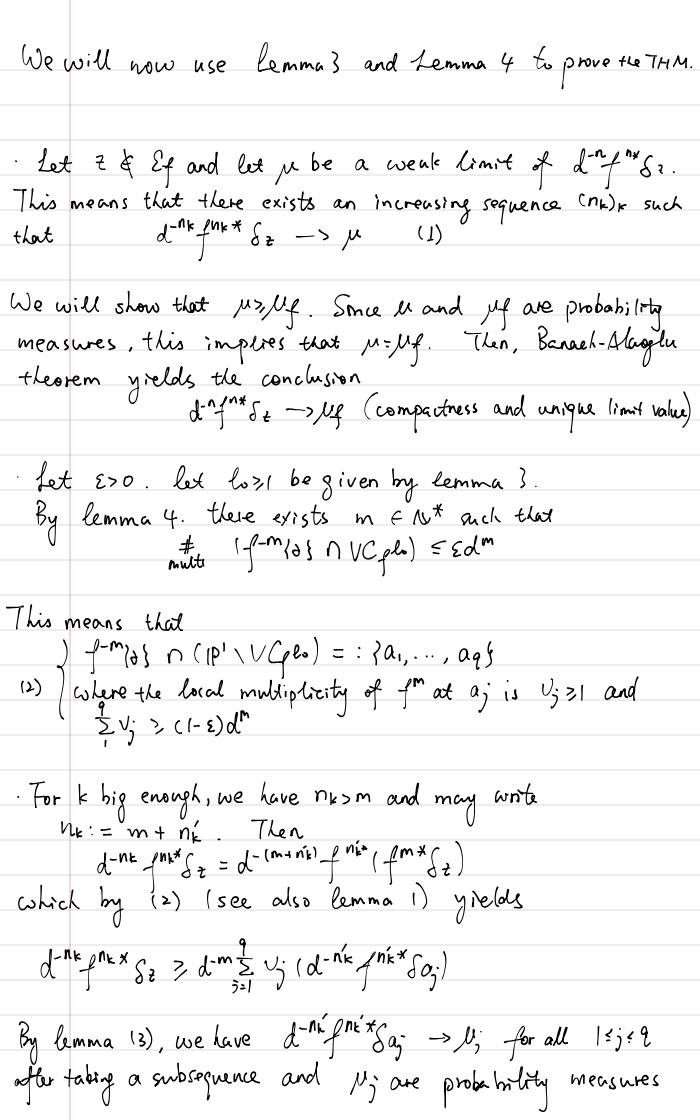 We will now use Lemma 3 and Lemma 4 to prove the THM.
· Let z ∉ Ɛf and let μ be a weak limit of d^{-n} f^{n*} δ_z.
This means that there exists an increasing sequence (n_k)_k such
that d^{-n_k} f^{n_k *} δ_z —> μ (1)
We will show that μ ≥ μ_f. Since μ and μ_f are probability
measures, this implies that μ = μ_f. Then, Banach-Alaoglu
theorem yields the conclusion
d^{-n} f^{n*} δ_z —> μ_f (compactness and unique limit value)
· Let ε>0. let l_0 ≥ 1 be given by lemma 3.
By lemma 4. there exists m ∈ N* such that
# (f^{-m}{z} ∩ VC_{f^{l_0}}) ≤ εd^m
multi
This means that
f^{-m}{z} ∩ (P^1 \ VC_{f^{l_0}}) =: {a_1, ..., a_q}
(2) where the local multiplicity of f^m at a_j is ν_j ≥ 1 and
Σ_1^q ν_j ≥ (1-ε)d^m
· For k big enough, we have n_k > m and may write
n_k := m + n_k'. Then
d^{-n_k} f^{n_k *} δ_z = d^{-(m+n_k')} f^{n_k' *} (f^{m*} δ_z)
which by (2) (see also lemma 1) yields
d^{-n_k} f^{n_k *} δ_z ≥ d^{-m} Σ_{j=1}^q ν_j (d^{-n_k'} f^{n_k' *} δ_{a_j})
By lemma (3), we have d^{-n_k'} f^{n_k' *} δ_{a_j} → μ_j for all 1≤j≤q
after taking a subsequence and μ_j are probability measures